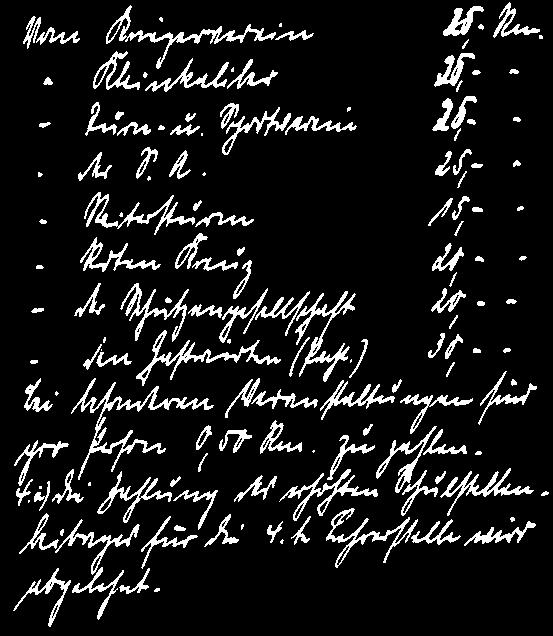 Vom Kriegerverein 25,- Rm.
" Kleinkaliber 25,- "
" Turn- u. Sportverein 25,- "
" der S. A. 25,- "
" Reitersturm 15,- "
" Roten Kreuz 20,- "
" der Schützengesellschaft 20,- "
" den Gastwirten (Päch.) 30,- "
Bei besonderen Veranstaltungen sind
pro Person 0,50 Rm. zu zahlen.
4.) die Zahlung des erhöhten Schulstellen-
beitrages für die 4. te Lehrerstelle wird
abgelehnt.